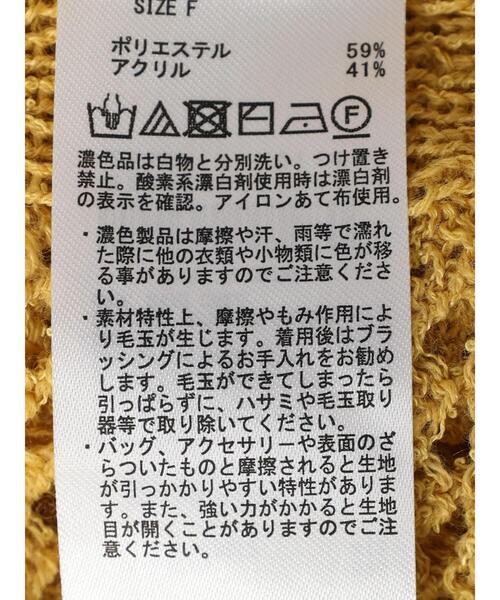 SIZE F
ポリエステル 59%
アクリル 41%
F
濃色品は白物と分別洗い。つけ置き
禁止。酸素系漂白剤使用時は漂白剤
の表示を確認。アイロンあて布使用。
・濃色製品は摩擦や汗、雨等で濡れ
た際に他の衣類や小物類に色が移
る事がありますのでご注意くださ
い。
・素材特性上、摩擦やもみ作用によ
り毛玉が生じます。着用後はブラ
ッシングによるお手入れをお勧め
します。毛玉ができてしまったら
引っぱらずに、ハサミや毛玉取り
器等で取り除いてください。
・バッグ、アクセサリーや表面のざ
らついたものと摩擦されると生地
が引っかかりやすい特性がありま
す。また、強い力がかかると生地
目が開くことがありますのでご注
意ください。